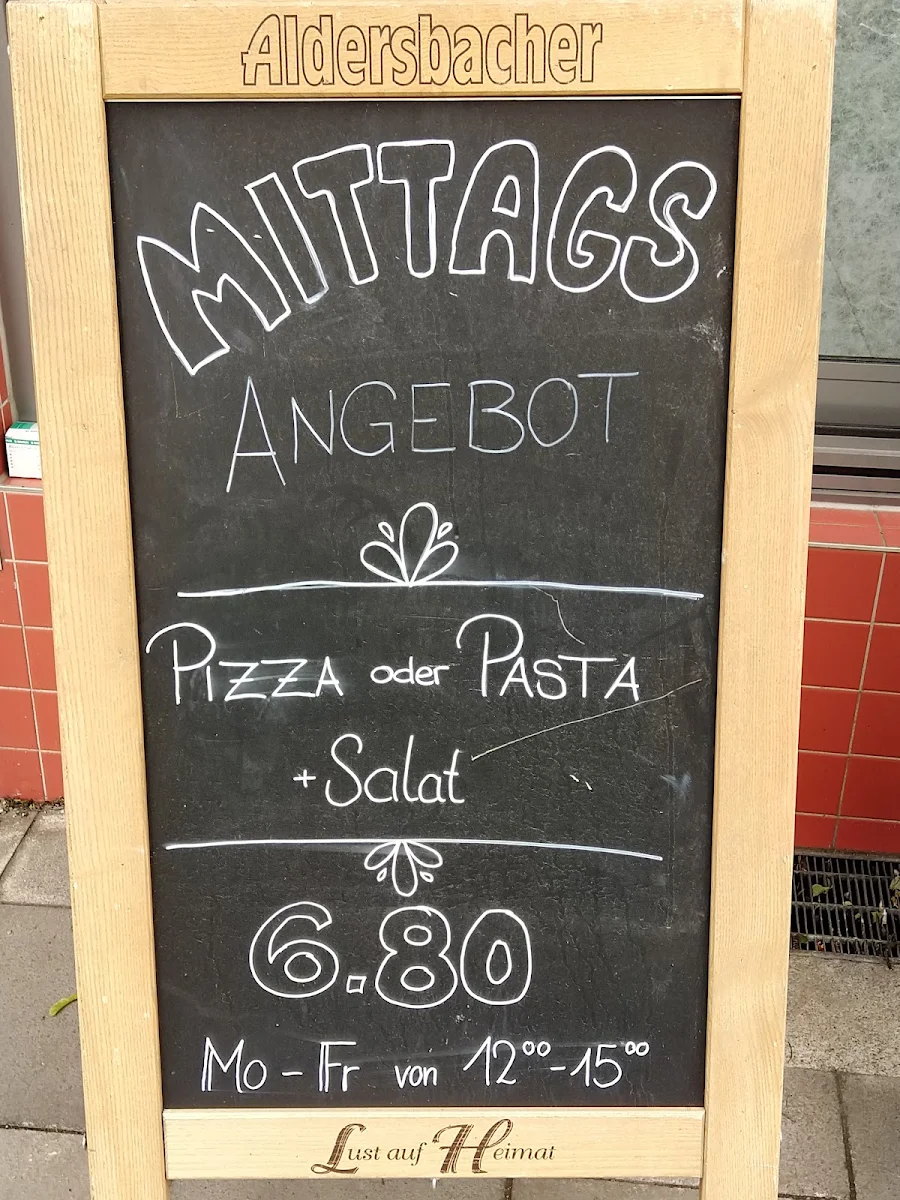 Aldersbacher
MITTAGS
ANGEBOT
PIZZA oder PASTA
+ Salat
6.80
Mo - Fr von 12⁰⁰-15⁰⁰
Lust auf Heimat